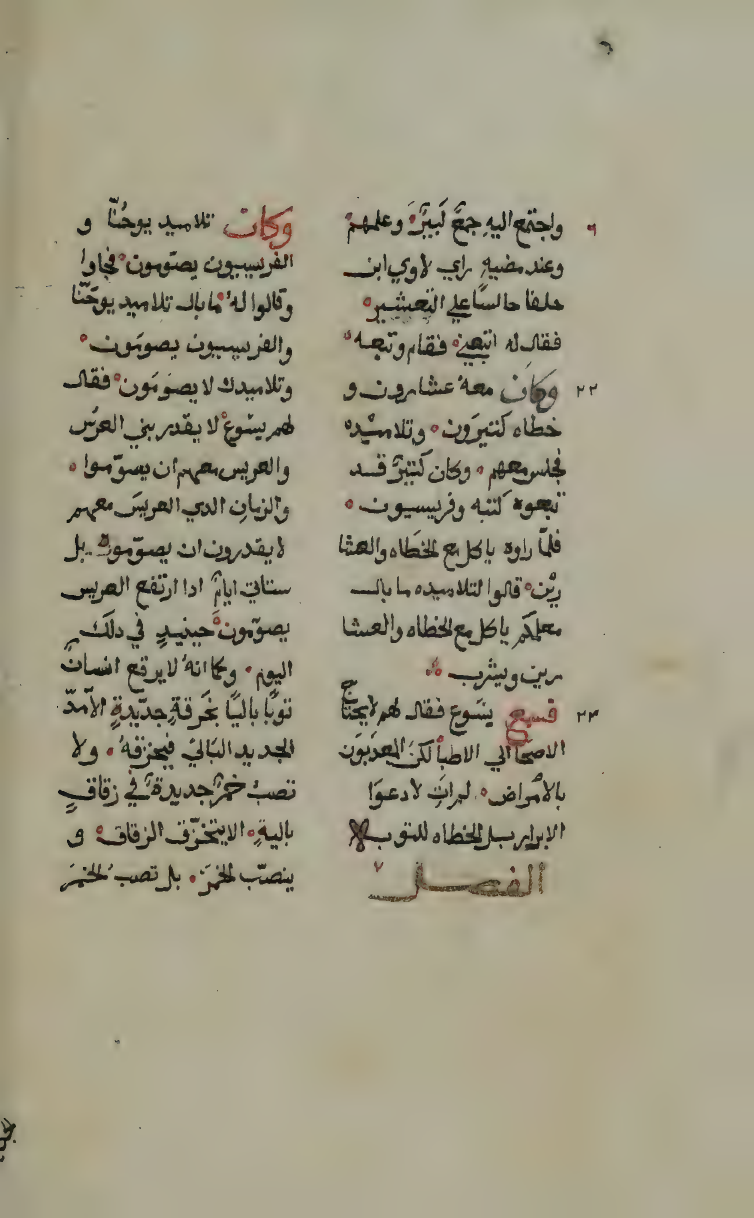 واجتمع اليه جمعٌ كبيرٌ وعلمهم
وعند مضيه راي لاوي ابن
حلفا جالسًا علي التعشير
فقال له اتبعني فقام وتبعه
٢٢ وكان معه عشارون و
خطاه كثيرون وتلاميذه
فجلس معهم وكان كثيرٌ قد
تبعوه كتبه وفريسيون
فلمّا راوه ياكل مع الخطاه والعشا
رين قالوا لتلاميده ما بال
معلمكم ياكل مع الخطاه والعشا
رين ويشرب
٢٣ فسمع يسوع فقال لهم لا يحتاج
الاصحا الي الاطبا لكن المعذبون
بالامراض لمرات لادعوا
الابرار بل الخطاه للتوبه
الفصل ٧
وكان تلاميد يوحنّا و
الفريسيون يصومون فجاوا
وقالوا له ما بال تلاميد يوحنّا
والفريسيون يصومون
وتلاميدك لا يصومون فقال
لهم يسوع لا يقدر بني العرس
والعريس معهم ان يصوموا
والزمان الدي العريس معهم
لا يقدرون ان يصومون بل
ستاتي ايامٌ ادا ارتفع العريس
يصومون حينيدٍ في دلك
اليوم وكما انه لا يرقع انسان
توبًا باليًا بخرقةٍ جديدةٍ الا مدّ
الجديد البالي فيخرقه ولا
تصبّ خمرٌ جديدةٌ في زقاقٍ
باليةٍ الا يتخرّق الزقاق و
ينصبّ الخمر بل تصبّ الخمر